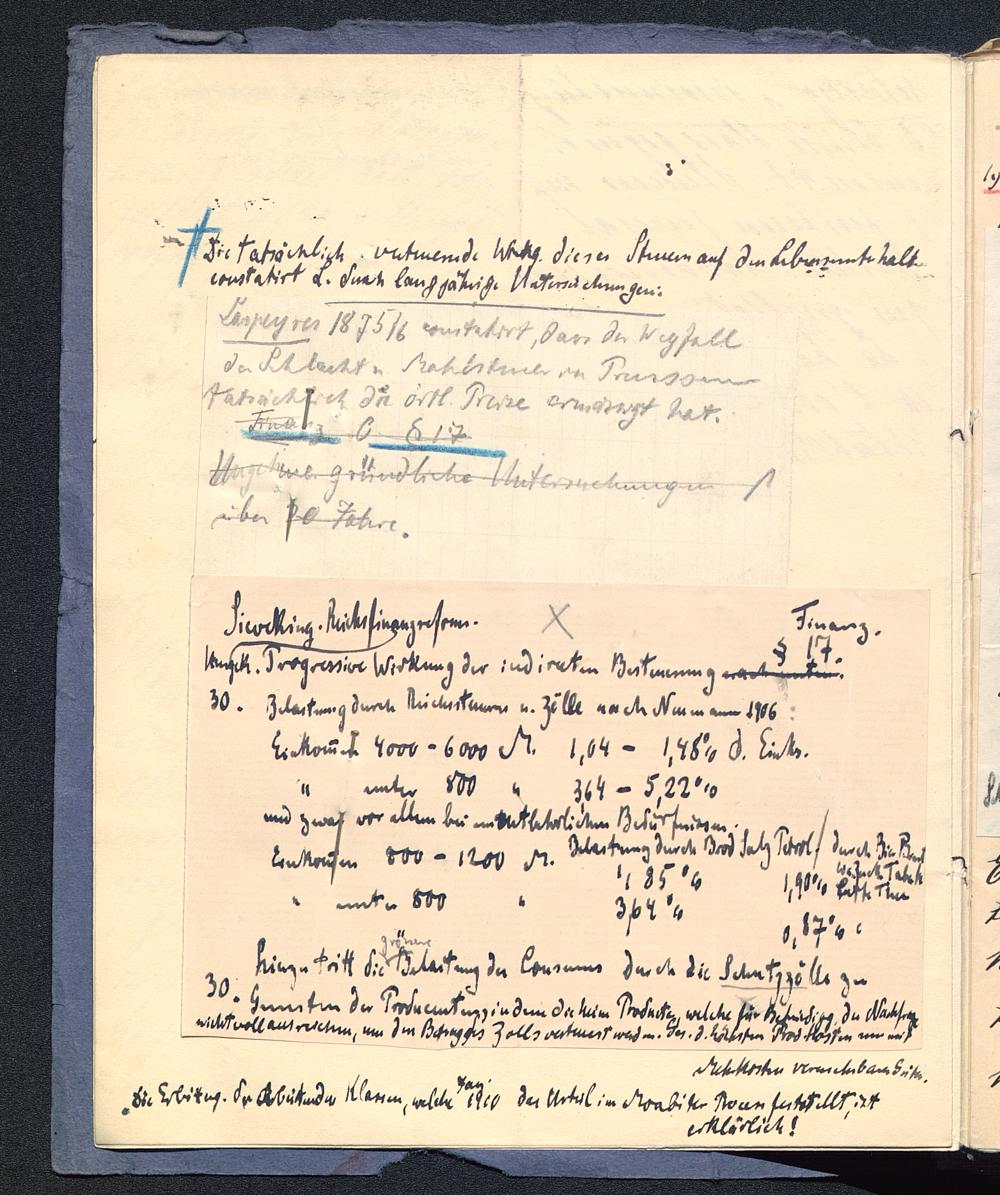 Die tatsächlich verteuernde Wirkg. dieser Steuern auf den Lebensunterhalt
constatirt L. durch langjährige Untersuchungen.
Laspeyres 1875/6 constatirt, dass der Wegfall
der Schlacht u Mahlsteuer in Preussen
tatsächlich die örtl. Preise ermässigt hat.
Finanz § 17
Ungeheuer gründliche Untersuchungen
über 10 Jahre.
Sieveking. Reichsfinanzreform. X Finanz.
§ 17.
Umgek. Progressive Wirkung der indirekten Besteuerung nach unten.
30. Belastung durch Reichssteuern u. Zölle nach Neumann 1906:
Einkomen 4000 - 6000 M. 1,04 - 1,48% d. Eink.
" unter 800 " 3,64 - 5,22%
und zwar vor allem bei unentbehrlichen Bedürfnissen.
Einkomen 800 - 1200 M. Belastung durch Brod Salz Petrol / durch Bier Brant
wein Zuck Tabak
1,85% 1,90% Caffe Thee
" unter 800 " 3,64%
0,87% "
Hinzu tritt die grössere Belastung des Consums durch die Schutzzölle zu
30. Gunsten der Producenten, indem die heim Producte, welche für Befriedigg. der Nachfrage
nicht voll ausreichen, um den Betrag des Zolls verteuert werden. Ges. d. höchsten Prod Kosten nur mit
Mehrkosten vermehrbaren Güter.
Die Erbitterg. der Arbeitenden Klassen, welche Jan. 1910 das Urteil im Moabiter Process feststellt, ist
erklärlich!